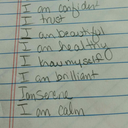 I am confident
I trust
I am beautiful
I am healthy
I know myself
I am brilliant
I am Serene
I am calm